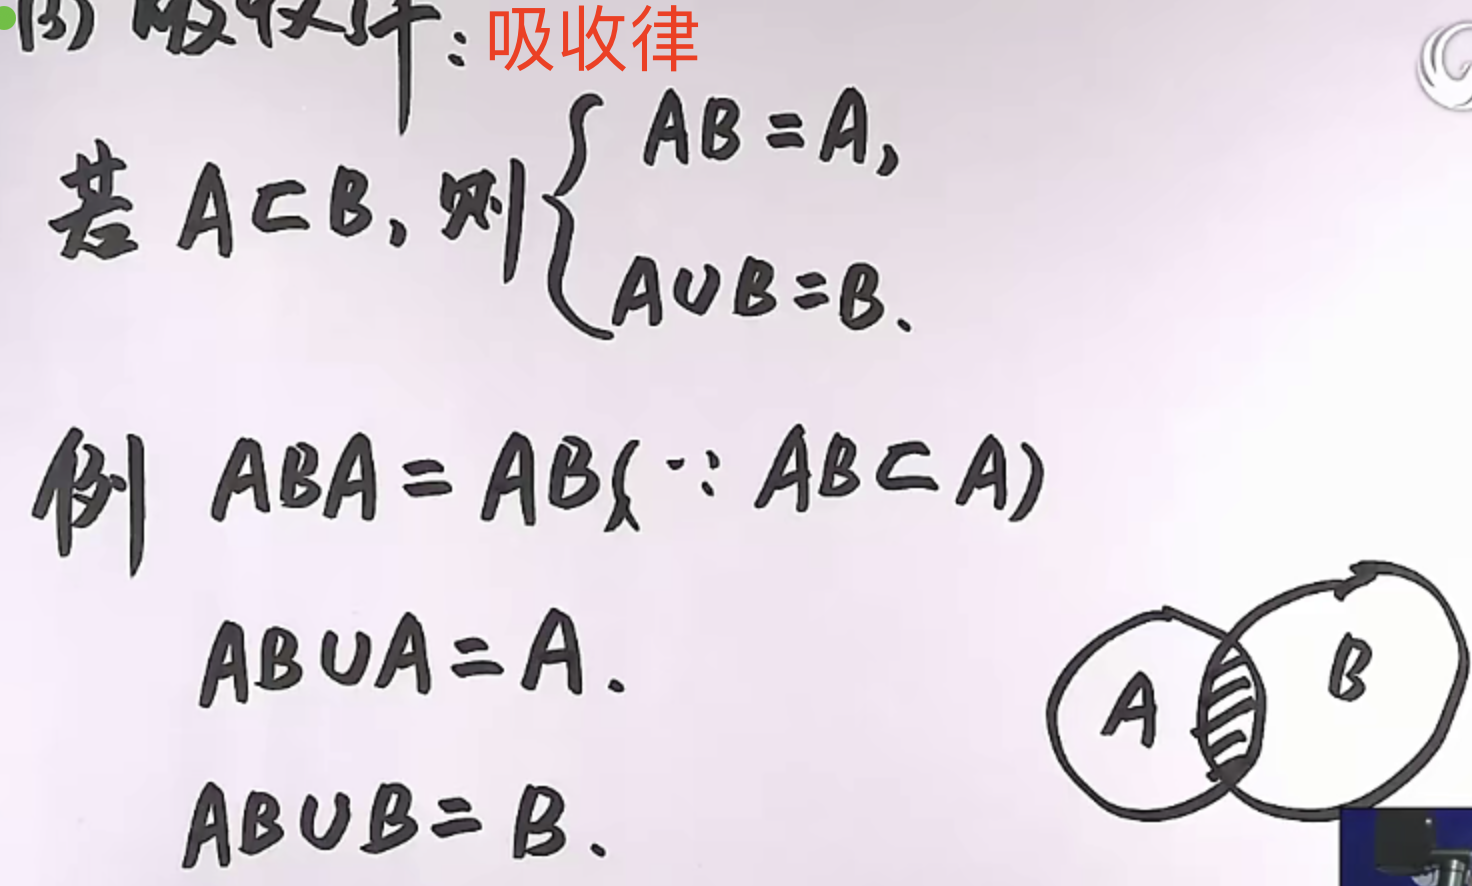 (3) 吸收律:吸收律
若 A⊂B, 则 { AB=A,
A∪B=B.
例 ABA=AB(∵ AB⊂A)
AB∪A=A.
AB∪B=B.
A B